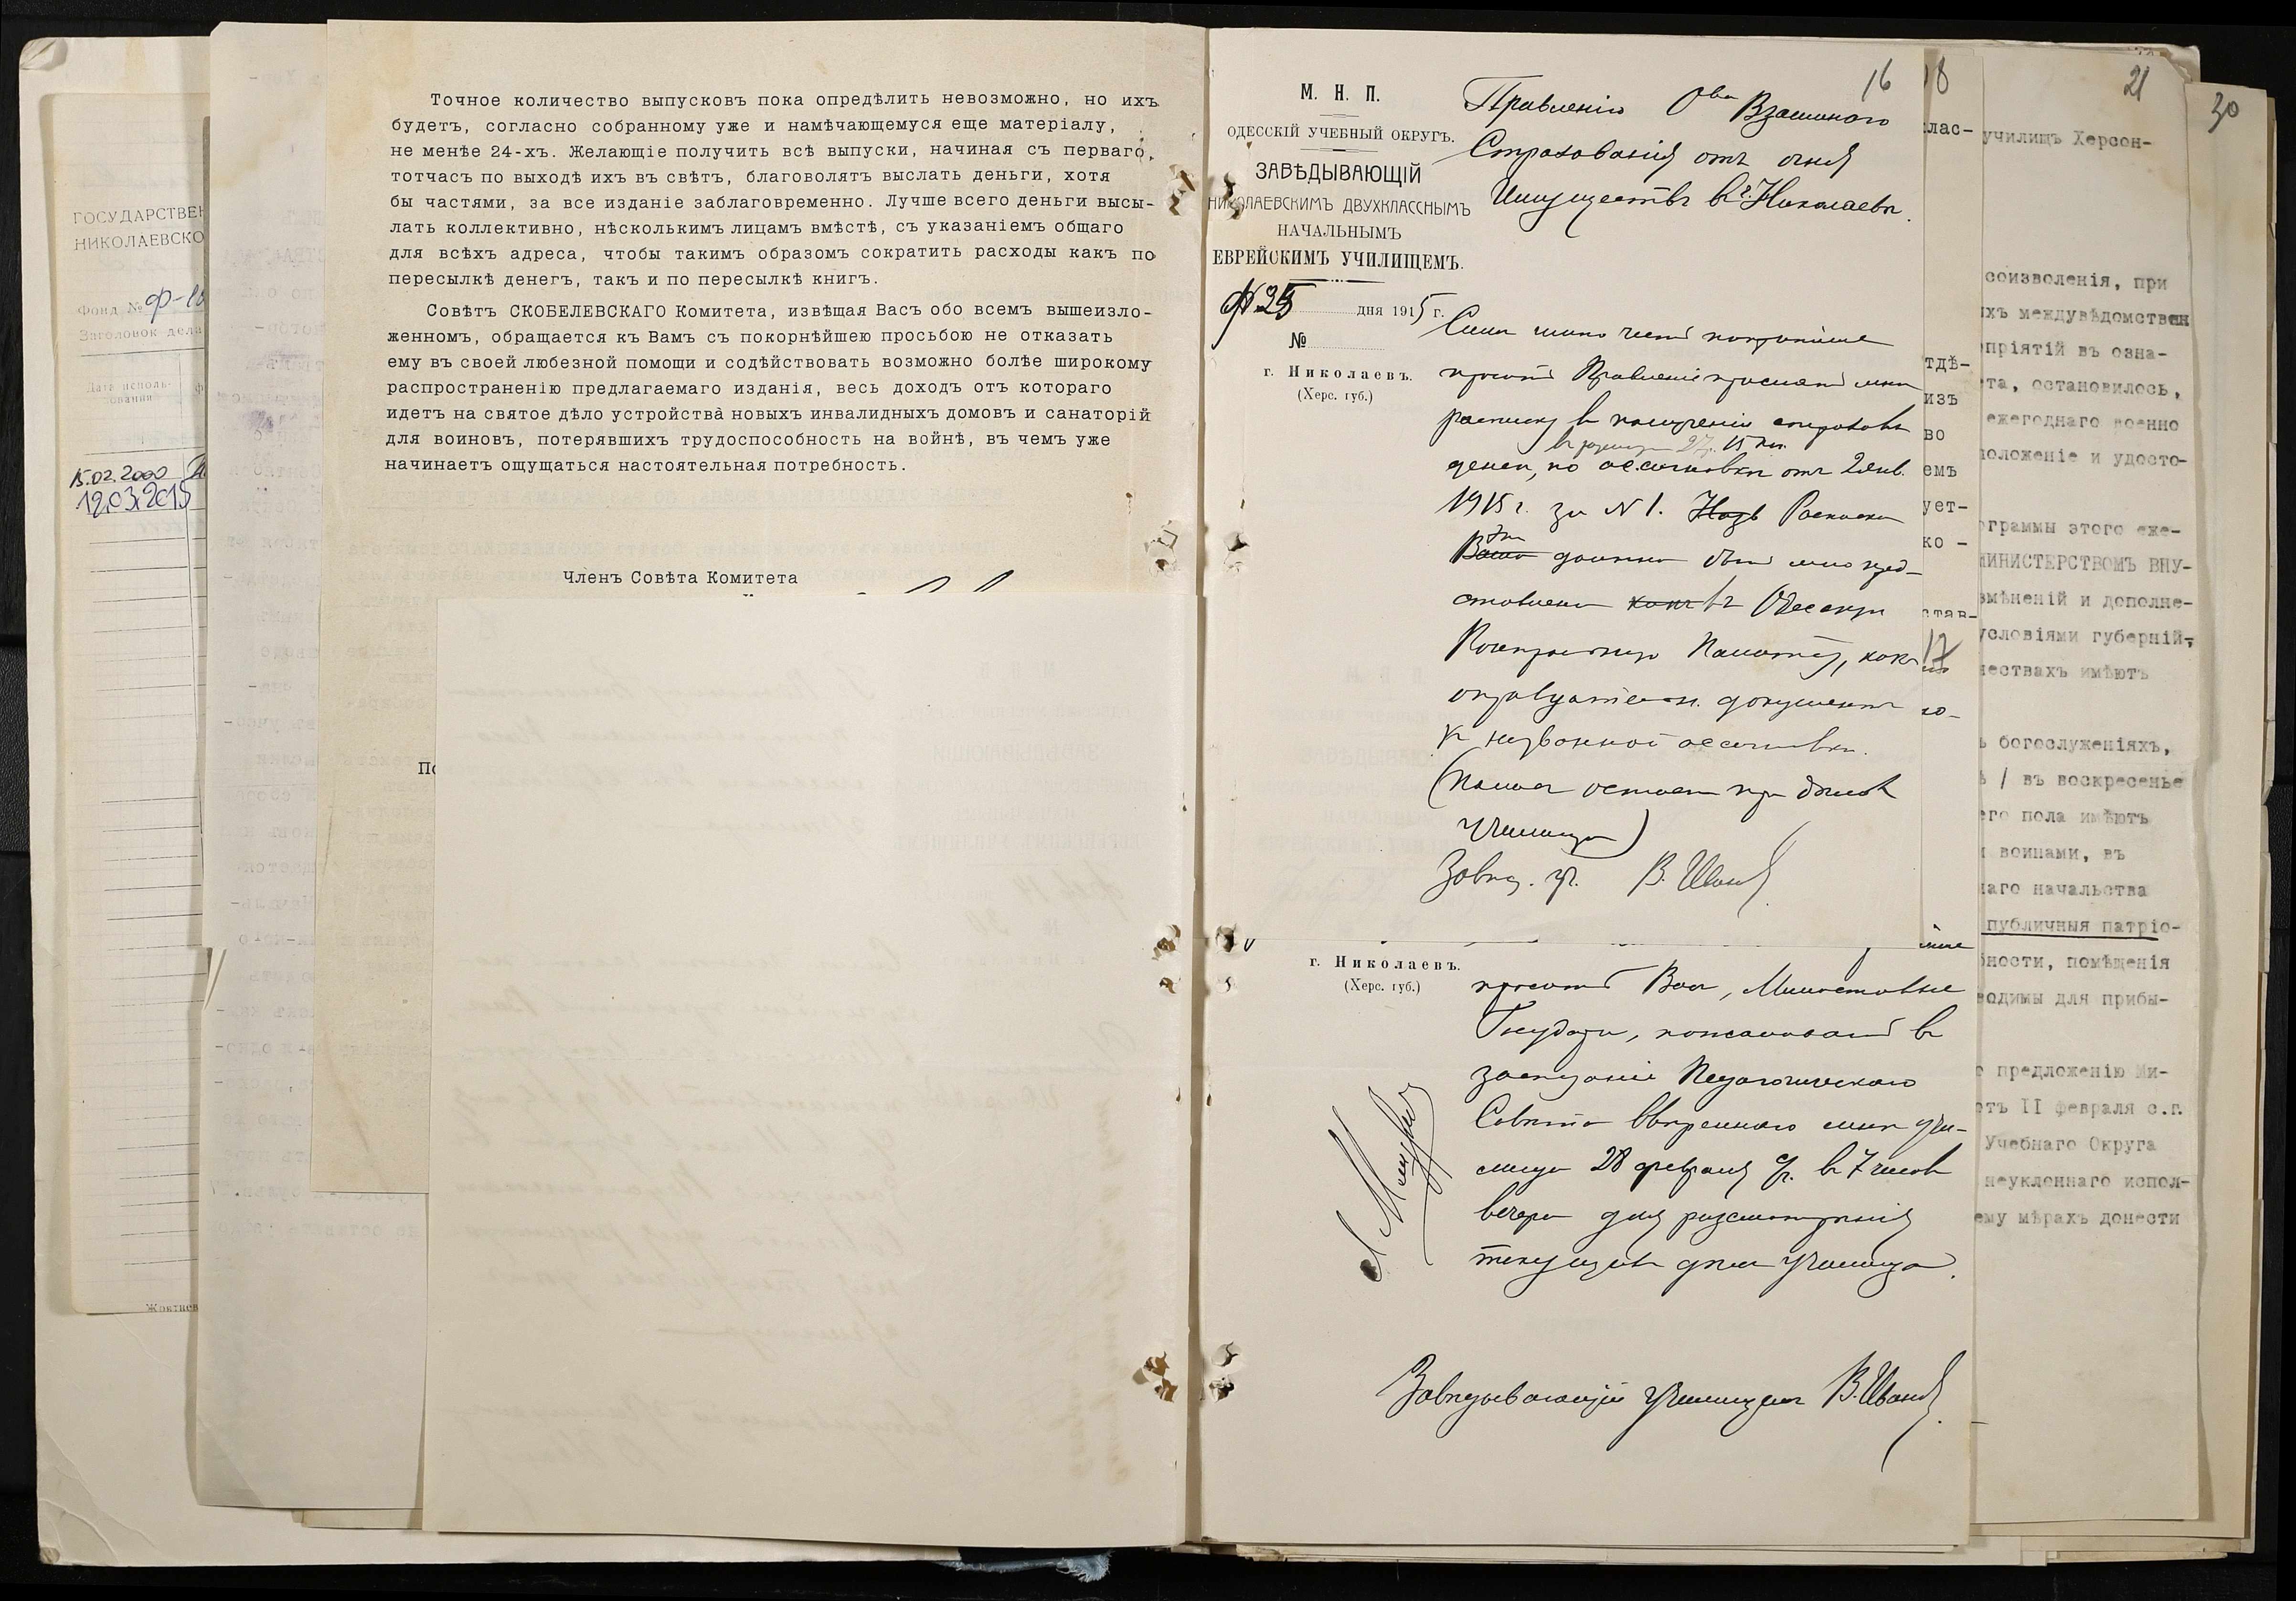 ГОСУДАРСТВЕН
НИКОЛАЕВСКО
Фонд № Ф-10
Заголовок дела
Дата исполь-
зования
15.02.2000
12.03.2015
Жовтнев
Точное количество выпусковъ пока опредѣлить невозможно, но ихъ
будетъ, согласно собранному уже и намѣчающемуся еще матеріалу,
не менѣе 24-хъ. Желающіе получить всѣ выпуски, начиная съ перваго,
тотчасъ по выходѣ ихъ въ свѣтъ, благоволятъ выслать деньги, хотя
бы частями, за все изданіе заблаговременно. Лучше всего деньги высы-
лать коллективно, нѣсколькимъ лицамъ вмѣстѣ, съ указаніемъ общаго
для всѣхъ адреса, чтобы такимъ образомъ сократить расходы какъ по
пересылкѣ денегъ, такъ и по пересылкѣ книгъ.
Совѣтъ СКОБЕЛЕВСКАГО Комитета, извѣщая Васъ обо всемъ вышеизло-
женномъ, обращается къ Вамъ съ покорнѣйшею просьбою не отказать
ему въ своей любезной помощи и содѣйствовать возможно болѣе широкому
распространенію предлагаемаго изданія, весь доходъ отъ котораго
идетъ на святое дѣло устройства новыхъ инвалидныхъ домовъ и санаторій
для воиновъ, потерявшихъ трудоспособность на войнѣ, въ чемъ уже
начинаетъ ощущаться настоятельная потребность.
Членъ Совѣта Комитета
По
16
М. Н. П.
ОДЕССКІЙ УЧЕБНЫЙ ОКРУГЪ.
ЗАВѢДЫВАЮЩІЙ
НИКОЛАЕВСКИМЪ ДВУХКЛАССНЫМЪ
НАЧАЛЬНЫМЪ
ЕВРЕЙСКИМЪ УЧИЛИЩЕМЪ.
Ф. 25 дня 1915 г.
№
г. Николаевъ.
(Херс. губ.)
Правленію О-ва Взаимнаго
Страхованія отъ огня
Имуществъ въ г. Николаевѣ.
Симъ имѣю честь покорнѣйше
просить Правленіе прислать мнѣ
расписку въ полученіи страховыхъ
въ размѣрѣ 27 р. 15 коп.
денегъ, по ассигновкѣ отъ 2 янв.
1915 г. за № 1. Росписка
эта должна быть мною пред-
ставлена въ Одесскую
Контрольную Палату, какъ
оправдательн. документъ
къ названной ассигновкѣ.
(Полисъ остается при дѣлахъ
Училища)
Завѣд. уч. В. Ивановъ
г. Николаевъ.
(Херс. губ.)
просить Васъ, Милостивые
Государи, пожаловать въ
засѣданіе Педагогическаго
Совѣта ввѣреннаго мнѣ учи-
лища 28 февраля с/г. въ 7 часовъ
вечера для разсмотрѣнія
текущихъ дѣлъ училища.
Завѣдывающій училищемъ В. Ивановъ
18
лас-
тдѣ-
изъ
во
емъ
ует-
ко -
став-
17
ко-
21
училищъ Херсон-
соизволенія, при
ихъ междувѣдомствен
опріятій въ озна-
та, остановилось,
ежегоднаго военно
положеніе и удосто-
ограммы этого еже-
МИНИСТЕРСТВОМЪ ВНУ-
змѣненій и дополне-
условіями губерній,
чествахъ имѣютъ
ъ богослуженіяхъ,
ѣ / въ воскресенье
его пола имѣютъ
и воинами, въ
наго начальства
публичныя патріо-
бности, помѣщенія
водимы для прибы-
о предложенію Ми-
отъ II февраля с.г.
Учебнаго Округа
неуклоннаго испол-
ему мѣрахъ донести
30